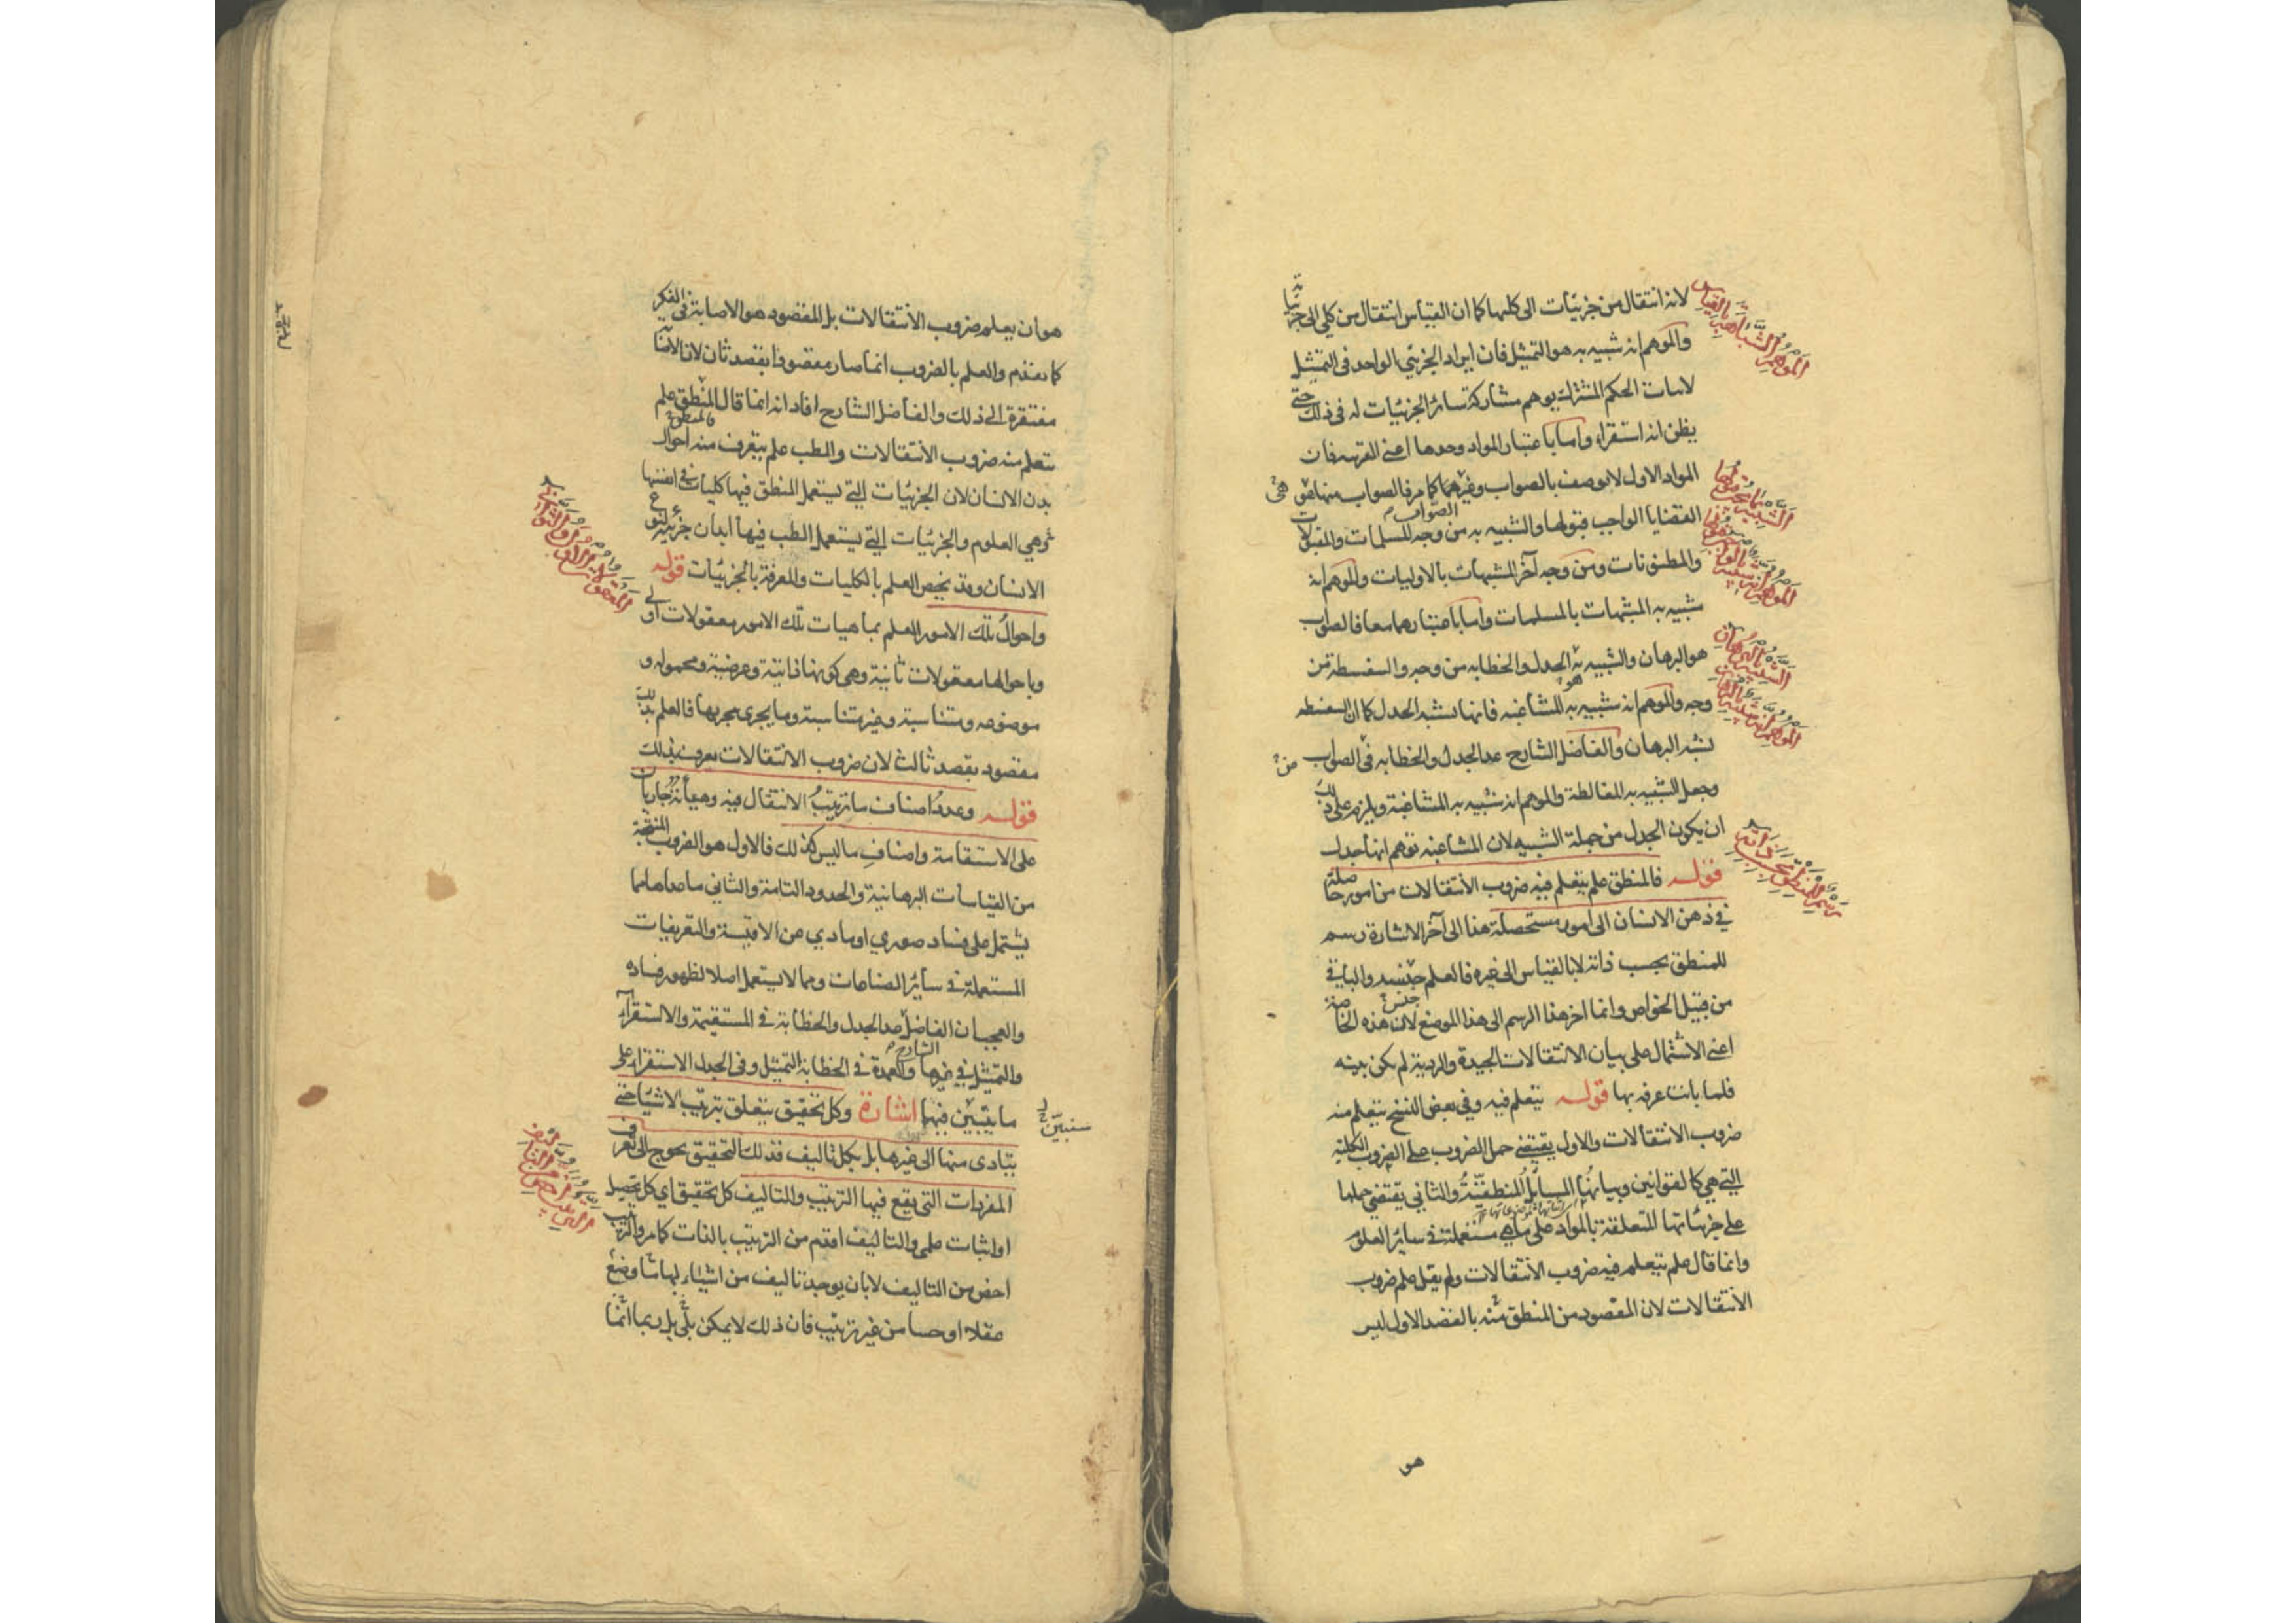 لانه انتقال من جزئيات الى كليها كما ان القياس انتقال من كلي الى جزئياته
والموهم انه شبيه به هو التمثيل فان ايراد الجزئي الواحد في التمثيل
لاثبات الحكم المشترك يوهم مشاركة سائر الجزئيات له في ذلك حتى
يظن انه استقراء واما باعتبار المواد وحدها اعني القريبة فان
المواد الاول لا يوصف بالصواب وغيرهما كما مر فالصواب منها هو
القضايا الواجب قبولها والشبيه به من وجه المسلمات والمقبولات
والمظنونات ومن وجه آخر المشبهات بالاوليات والموهم انه
شبيه به المشبهات بالمسلمات واما باعتبارهما معا فالصواب
هو البرهان والشبيه به الجدل والخطابه من وجه والسفسطة من
وجه والموهم انه شبيه به المشاغبه فانها تشبه الجدل كما ان السفسطه
تشبه البرهان والفاضل الشارح عد الجدل والخطابه في الصواب
وجعل الشبيه به المغالطة والموهم انه شبيه به المشاغبة ويلزم على ذلك
ان يكون الجدل من جملة الشبيه لان المشاغبه توهم انها جدل
قوله فالمنطق علم يتعلم فيه ضروب الانتقالات من امور حاصلة
في ذهن الانسان الى امور مستحصلة هذا الى آخر الاشارة رسم
للمنطق بحسب ذاته لا بالقياس الى غيره فالعلم جنسه والباقي
من قبيل الخواص وانما اخر هذا الرسم الى هذا الموضع لان هذه الخاصة
اعني الاشتمال على بيان الانتقالات الجيدة والردية لم يكن بينه
فلما بانت عرفه بها قوله يتعلم فيه وفي بعض النسخ يتعلم منه
ضروب الانتقالات والاول يقتضي حمل الضروب على الضروب الكلية
التي هي كالقوانين وبيانها المسائل المنطقية والثاني يقتضي حملها
على جزئياتها المتعلقة بالمواد على ما هي مستعملة في سائر العلوم
وانما قال علم يتعلم فيه ضروب الانتقالات ولم يقل علم ضروب
الانتقالات لان المقصود من المنطق منه بالقصد الاول ليس
هو
هو ان يعلم ضروب الانتقالات بل المقصود هو الاصابة في الفكر
كما تقدم والعلم بالضروب انما صار مقصودا بقصد ثان لان الاصابة
مفتقرة الى ذلك والفاضل الشارح افاد انه انما قال المنطق علم
يتعلم منه ضروب الانتقالات والطب علم يتعرف منه احوال
بدن الانسان لان الجزئيات التي يستعمل المنطق فيها كليات في انفسها
وهي العلوم والجزئيات التي يستعمل الطب فيها ابدان جزئية لنوع
الانسان وقد يخص العلم بالكليات والمعرفة بالجزئيات قوله
واحوال تلك الامور العلم بماهيات تلك الامور معقولات اولى
وباحوالها معقولات ثانية وهي كونها ذاتية وعرضية ومحموله و
موضوعه ومتناسبة وغير متناسبة وما يجري مجريها فالعلم بذلك
مقصود بقصد ثالث لان ضروب الانتقالات تعرف بذلك
قوله وعدد اصناف ما ترتيب الانتقال فيه وهيأته جاريان
على الاستقامة واصناف ما ليس كذلك فالاول هو الضروب المنتجة
من القياسات البرهانية والحدود التامة والثاني ما عداها مما
يشتمل على فساد صوري او مادي من الاقيسة والتعريفات
المستعملة في سائر الصناعات ومما لا يستعمل اصلا لظهور فساده
والعجب ان الفاضل عد الجدل والخطابة في المستقيمة والاستقراء
الشارح
والتمثيل في غيرها والعمدة في الخطابة التمثيل وفي الجدل الاستقراء على
ما يتبين فيها اشارة وكل تحقيق يتعلق بترتيب الاشياء حتى
سنبين
يتادى منها الى غيرها بل بكل تاليف فذلك التحقيق يحوج الى تعرف
المفردات التي يقع فيها الترتيب والتاليف كل تحقيق اي كل تحصيل
او اثبات علمي والتاليف اقدم من الترتيب بالذات كما مر والترتيب
اخص من التاليف لا بان يوجد تاليف من اشياء لها ما وضع
عقلا او حسا من غير ترتيب فان ذلك لا يمكن بل ربما انما